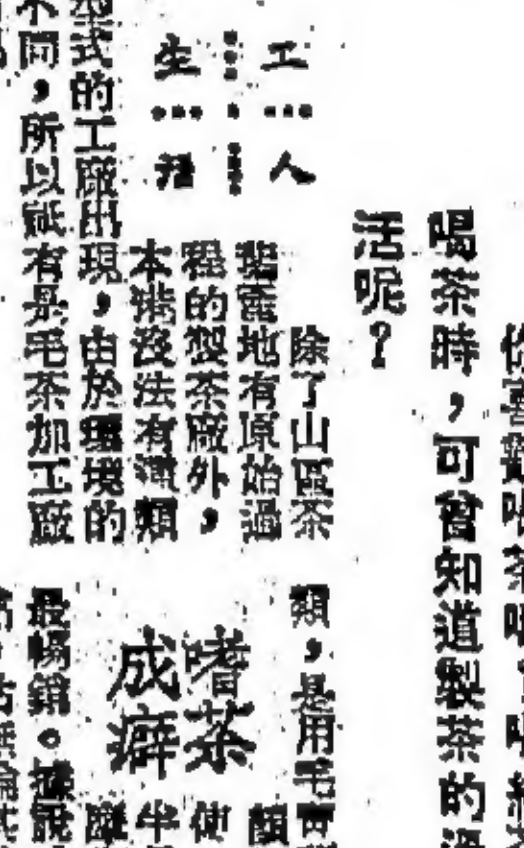 你喜歡喝茶嗎？喝
喝茶時，可曾知道製茶的
活呢？
工人
生活
除了山區茶
地有原始過
程的製茶廠外，
本港沒法有這類
型式的工廠出現，由於環境的
不同，所以祇有是毛茶加工廠
類，是用毛
嗜茶
成癖
半
最暢銷。據說
無論